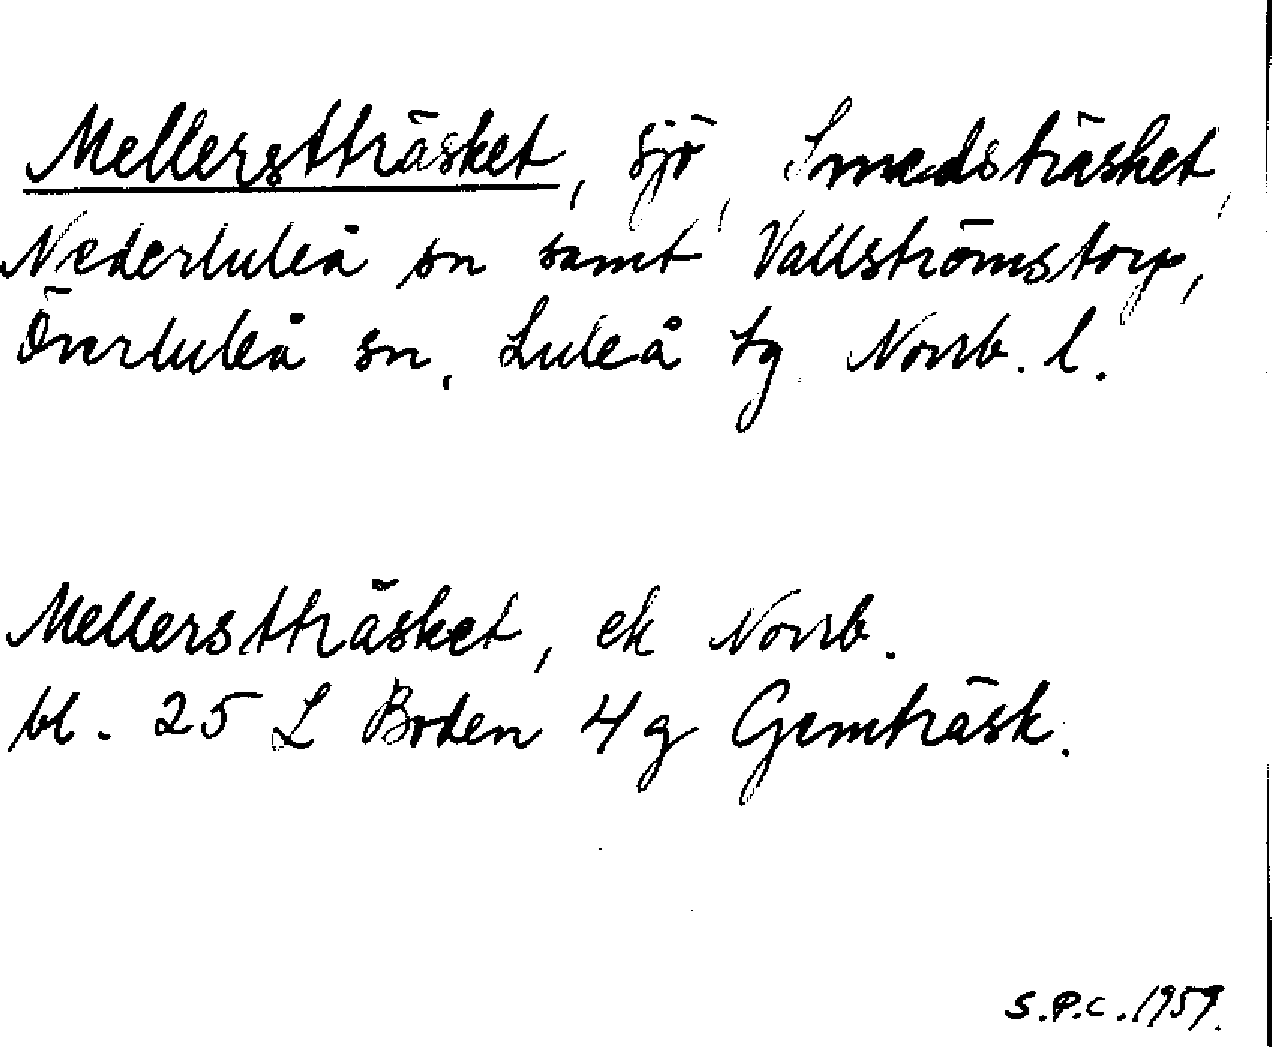 Mellerstträsket, sjö, Smedsträsket,
Nederluleå sn samt Vallströmstorp,
Överluleå sn, Luleå tg Norrb. l.
Mellerstträsket, ek Norrb.
bl. 25 L Boden 4 g Gemträsk.
S.P.C. 1959.